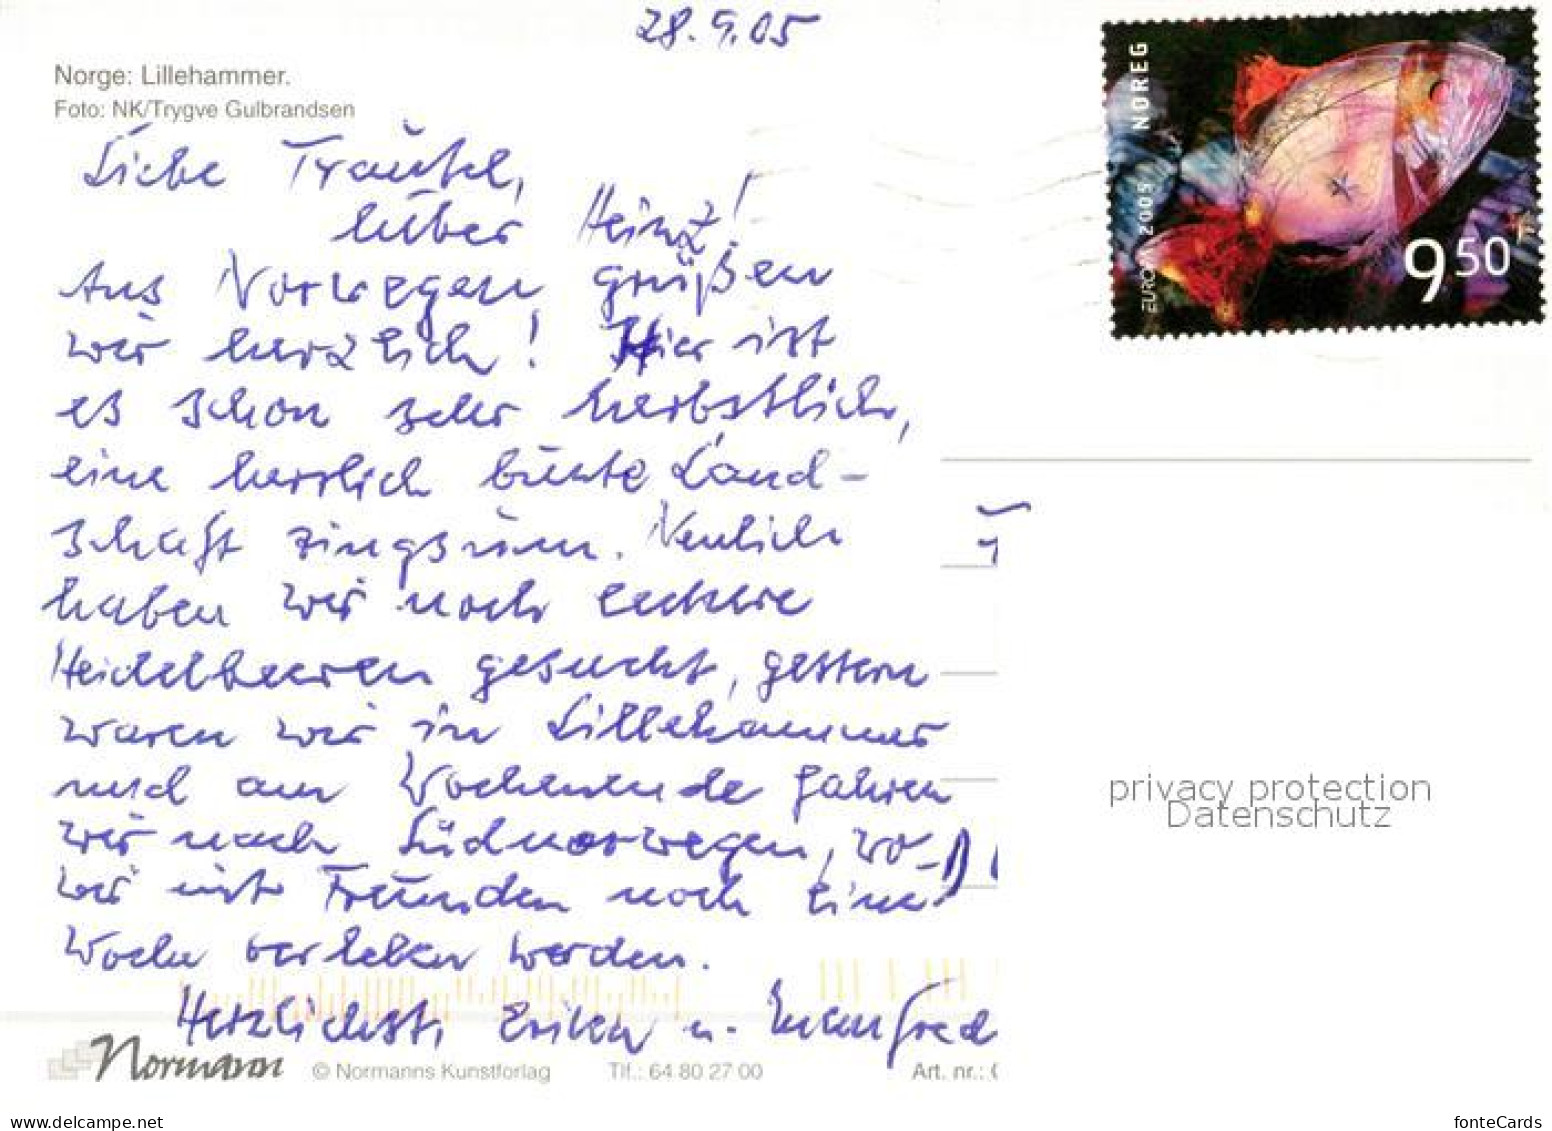 28.9.05
Norge: Lillehammer.
Foto: NK/Trygve Gulbrandsen
NOREG
EUROPA 2005
9 50
Liebe Trautel,
lieber Heinz!
Aus Norwegen grüßen
wir herzlich! Hier ist
es schon sehr herbstlich,
eine herrlich bunte Land-
schaft ringsum. Neulich
haben wir noch leckere
Heidelbeeren gesucht, gestern
waren wir in Lillehammer
und am Wochenende fahren
wir nach Südnorwegen, wo
wir mit Freunden noch eine
Woche verleben werden.
Herzlichst, Erika u. Manfred
privacy protection
Datenschutz
Normann
© Normanns Kunstforlag Tlf.: 64 80 27 00 Art. nr.:
www.delcampe.net
fonteCards